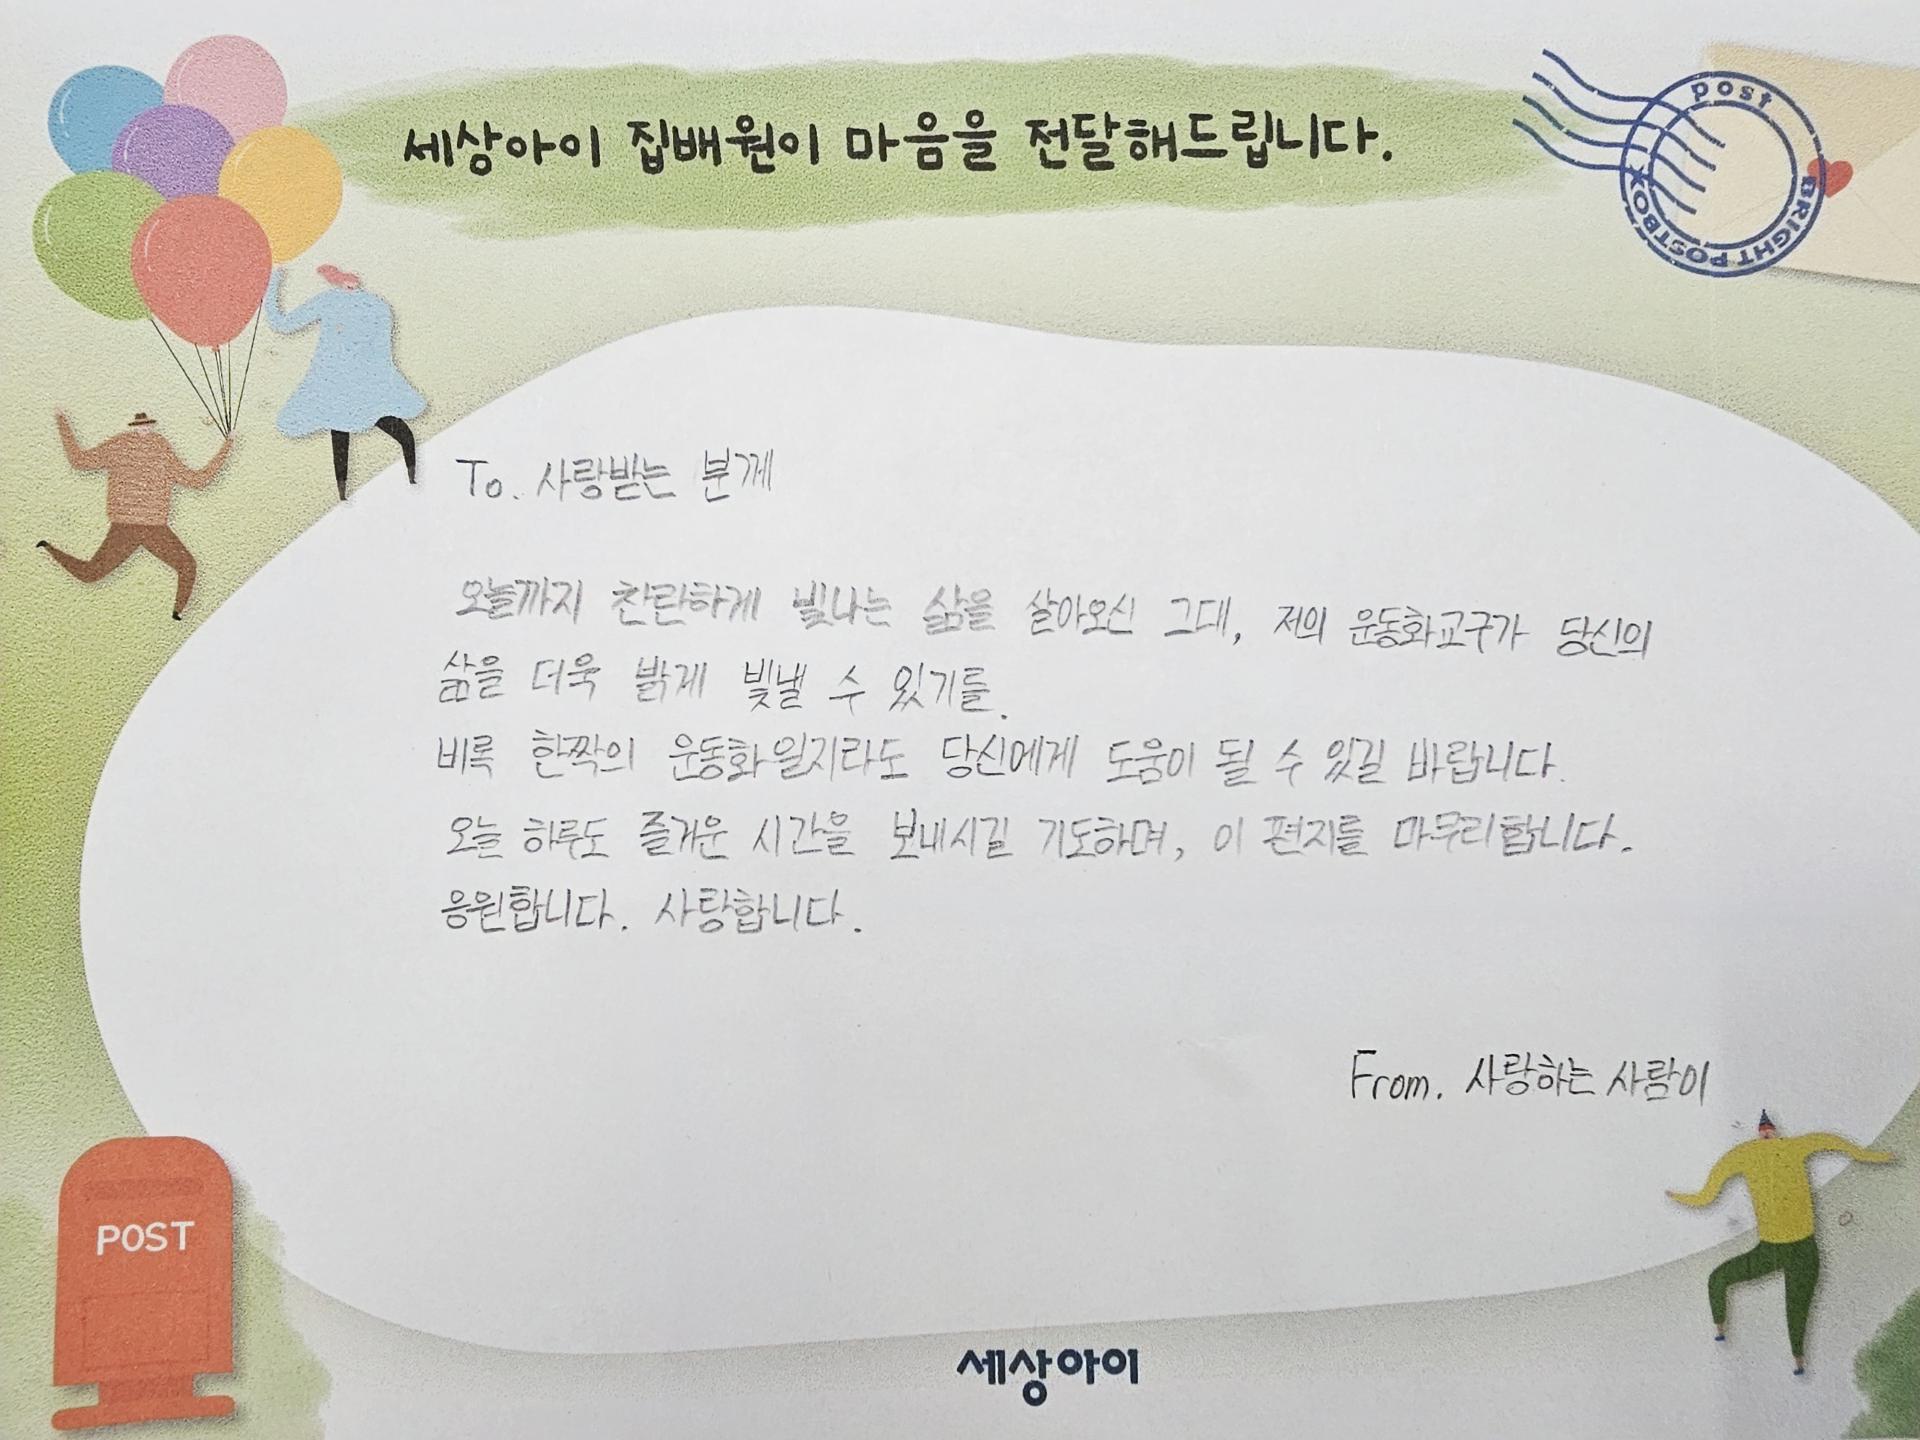 세상아이 집배원이 마음을 전달해드립니다.
post
BRIGHT POSTBOX
To. 사랑받는 분께
오늘까지 찬란하게 빛나는 삶을 살아오신 그대, 저의 운동화교구가 당신의
삶을 더욱 밝게 빛낼 수 있기를.
비록 한짝의 운동화일지라도 당신에게 도움이 될 수 있길 바랍니다.
오늘 하루도 즐거운 시간을 보내시길 기도하며, 이 편지를 마무리합니다.
응원합니다. 사랑합니다.
From. 사랑하는 사람이
POST
세상아이